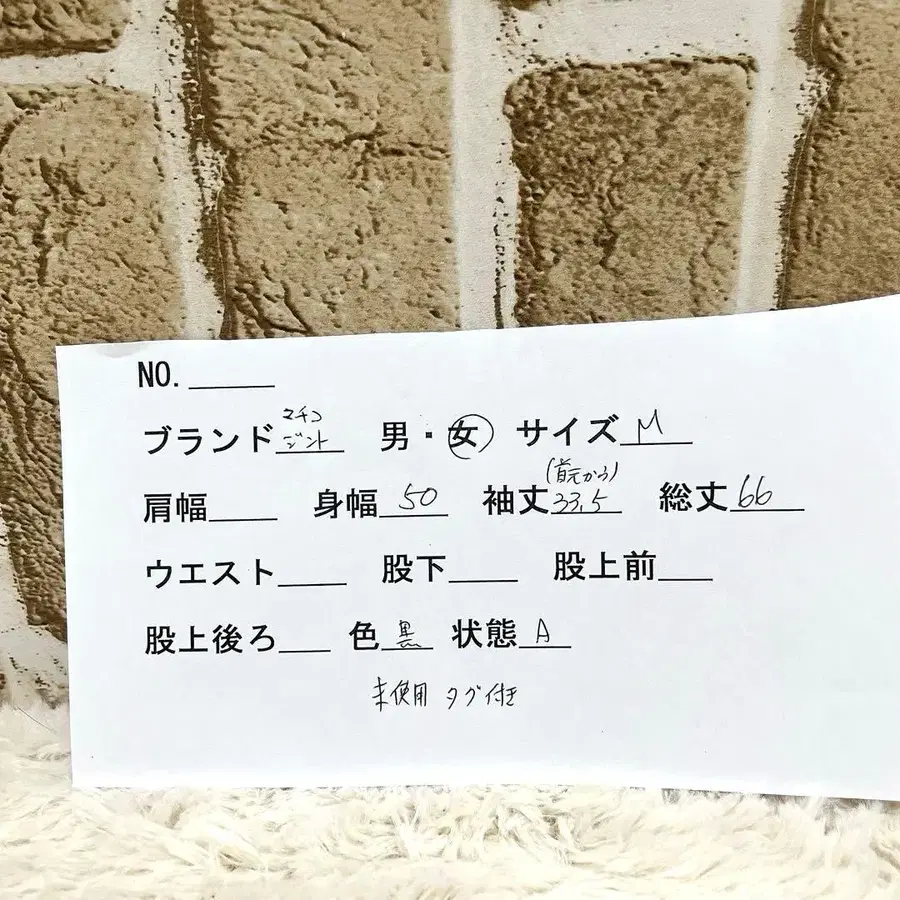 NO.
ブランド マチコ ジント 男・女 サイズ M
肩幅 身幅 50 袖丈 (首元から) 33.5 総丈 66
ウエスト 股下 股上前
股上後ろ 色 黒 状態 A
未使用 タグ付き